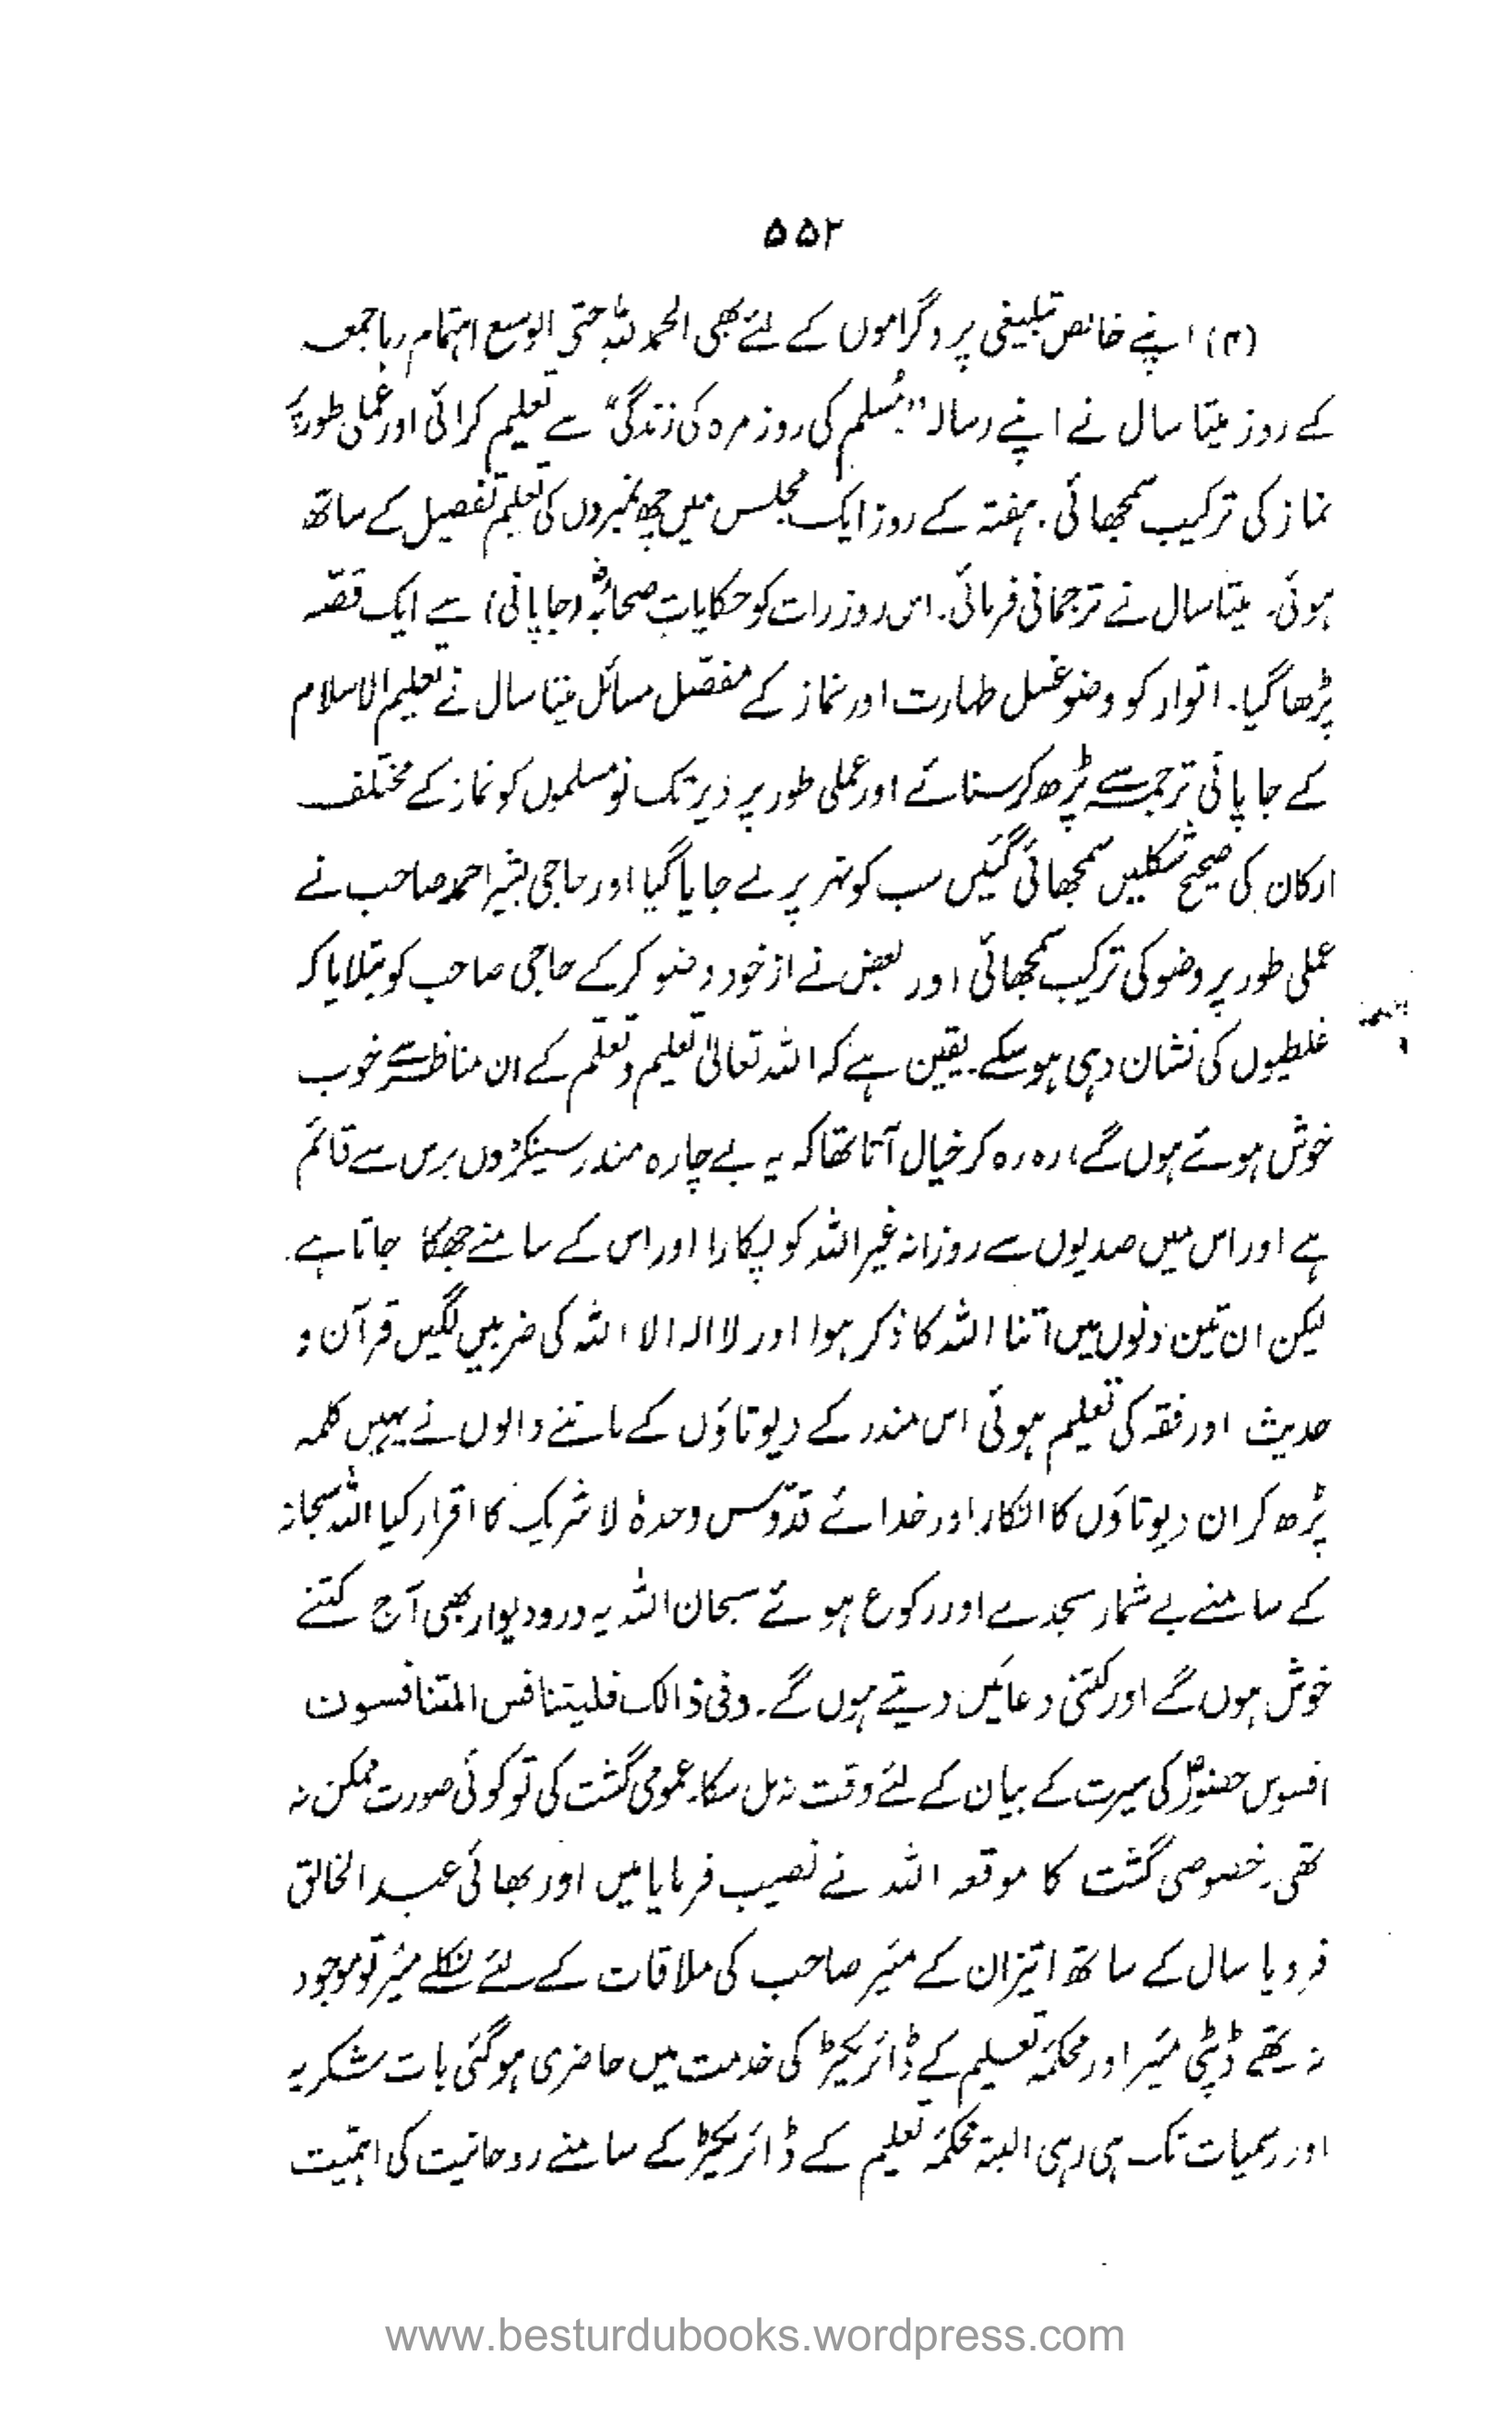 ۵۵۲
(۴) اپنے خالص تبلیغی پروگراموں کے لئے بھی الحمدللہ حتی الوسع اہتمام رہا جمعہ
کے روز میتا سال نے اپنے رسالہ "مُسلم کی روز مرہ کی زندگی" سے تعلیم کرائی اور عملی طور پر
نماز کی ترکیب سمجھائی۔ ہفتہ کے روز ایک مجلس میں چھ نمبروں کی تعلیم تفصیل کے ساتھ
ہوئی۔ میتا سال نے ترجمانی فرمائی۔ اس روز رات کو حکایاتِ صحابہؓ (جاپانی) سے ایک قصّہ
پڑھا گیا۔ اتوار کو وضو غسل طہارت اور نماز کے مفصّل مسائل میتا سال نے تعلیم الاسلام
کے جاپانی ترجمہ سے پڑھ کر سنائے اور عملی طور پر دیر تک نومسلموں کو نماز کے مختلف
ارکان کی صحیح شکلیں سمجھائی گئیں سب کو نہر پر لے جایا گیا اور حاجی بشیر احمد صاحب نے
عملی طور پر وضو کی ترکیب سمجھائی اور بعض نے از خود وضو کر کے حاجی صاحب کو بتلایا کہ
غلطیوں کی نشان دہی ہو سکے۔ یقین ہے کہ اللہ تعالیٰ تعلیم و تعلّم کے ان مناظر سے خوب
خوش ہوئے ہوں گے، رہ رہ کر خیال آتا تھا کہ یہ بے چارہ مندر سینکڑوں برس سے قائم
ہے اور اس میں صدیوں سے روزانہ غیر اللہ کو پکارا اور اس کے سامنے جھکا جاتا ہے۔
لیکن ان تین دنوں میں اتنا اللہ کا ذکر ہوا اور لا الہ الا اللہ کی ضربیں لگیں قرآن و
حدیث اور فقہ کی تعلیم ہوئی اس مندر کے دیوتاؤں کے ماننے والوں نے یہیں کلمہ
پڑھ کر ان دیوتاؤں کا انکار اور خدائے قدّوس وحدہٗ لا شریک کا اقرار کیا اللہ سبحانہ
کے سامنے بے شمار سجدے اور رکوع ہوئے سبحان اللہ یہ در و دیوار بھی آج کتنے
خوش ہوں گے اور کتنی دعائیں دیتے ہوں گے۔ وفی ذالک فلیتنافس المتنافسون
افسوس حضورؐ کی سیرت کے بیان کے لئے وقت نہ مل سکا۔ عمومی گشت کی تو کوئی صورت ممکن نہ
تھی۔ خصوصی گشت کا موقعہ اللہ نے نصیب فرمایا میں اور بھائی عبد الخالق
فرویا سال کے ساتھ اتیزان کے میئر صاحب کی ملاقات کے لئے نکلے میئر تو موجود
نہ تھے ڈپٹی میئر اور محکمۂ تعلیم کے ڈائریکٹر کی خدمت میں حاضری ہوگئی بات شکریہ
اور رسمیات تک ہی رہی البتہ محکمۂ تعلیم کے ڈائریکٹر کے سامنے روحانیت کی اہمیّت
www.besturdubooks.wordpress.com